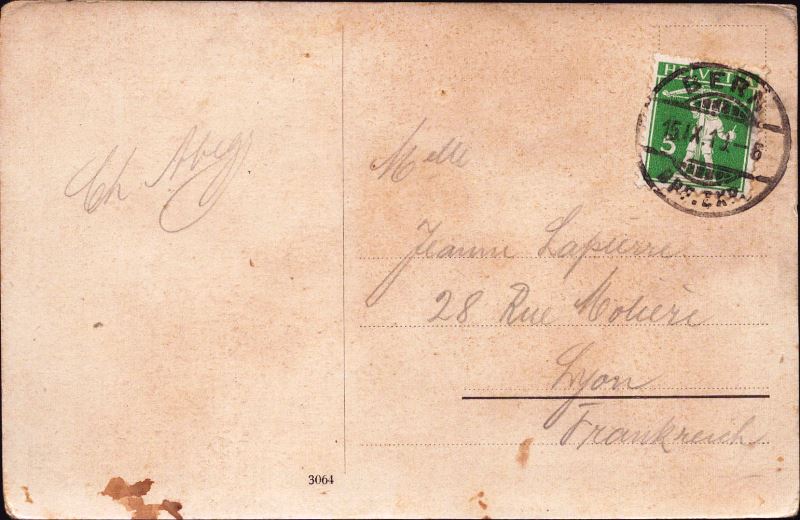 HELVETIA
5
BERN
15.IX.1
6
BRF.EXP.
Ch. Abegg
Melle
Jeanne Lapierre
28 Rue Molière
Lyon
Frankreich
3064